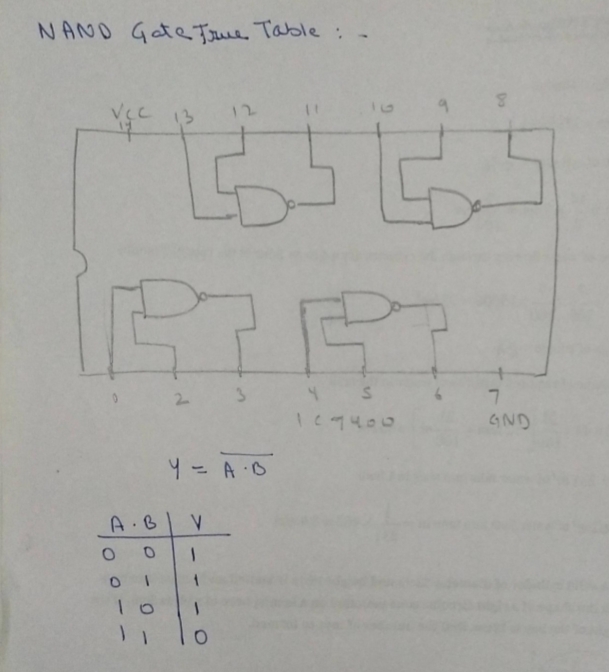 NAND Gate True Table : -
VCC 14 13 12 11 10 9 8
1 2 3 4 5 6 7
IC 7400 GND
Y = \overline{A · B}
A · B | Y
0 0 | 1
0 1 | 1
1 0 | 1
1 1 | 0